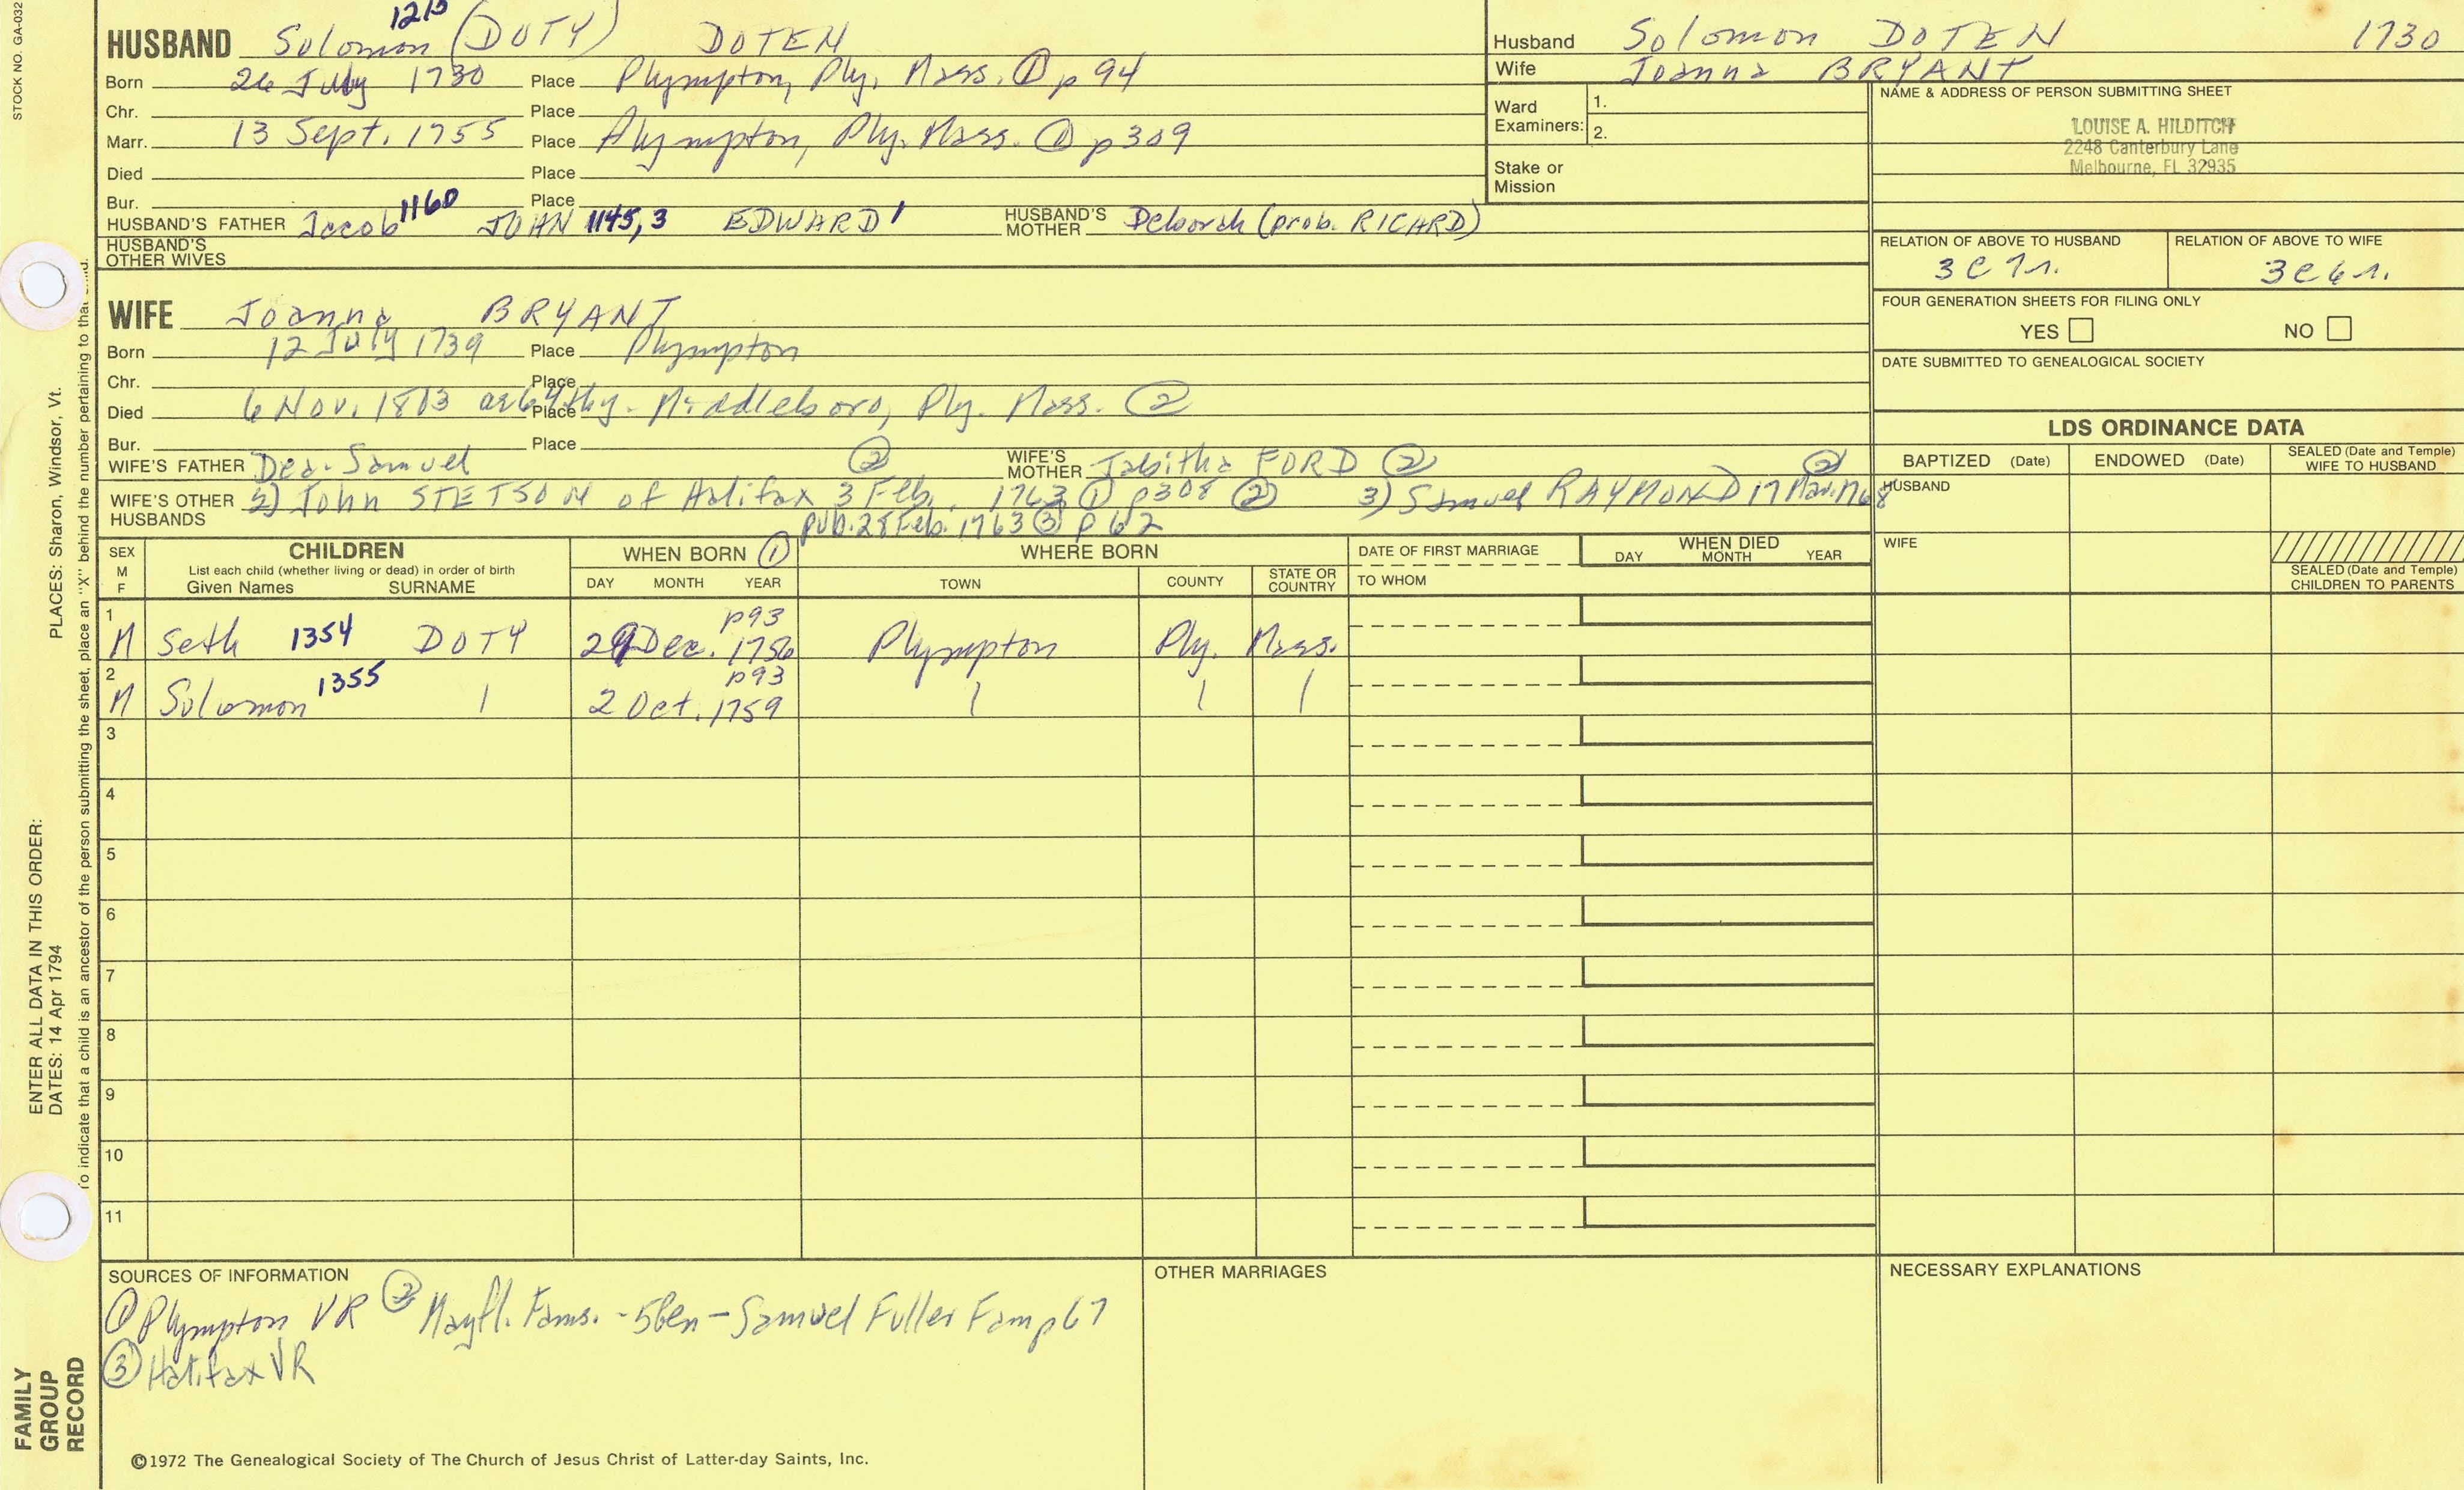 STOCK NO. GA-032
1213
HUSBAND Solomon (DOTY) DOTEN
Born 26 July 1730 Place Plympton, Ply. Mass. ① p 94
Chr. Place
Marr. 13 Sept. 1755 Place Plympton, Ply. Mass. ① p 309
Died Place
Bur. Place
HUSBAND'S FATHER Jacob 1160 JOHN 1145,3 EDWARD 1 HUSBAND'S MOTHER Deborah (prob. RICARD)
HUSBAND'S OTHER WIVES
Husband Solomon DOTEN 1730
Wife Joanna BRYANT
Ward Examiners: 1.
2.
Stake or Mission
NAME & ADDRESS OF PERSON SUBMITTING SHEET
LOUISE A. HILDITCH
2248 Canterbury Lane
Melbourne, FL 32935
RELATION OF ABOVE TO HUSBAND RELATION OF ABOVE TO WIFE
3 C 7 r. 3 C 6 r.
FOUR GENERATION SHEETS FOR FILING ONLY
YES NO
DATE SUBMITTED TO GENEALOGICAL SOCIETY
WIFE Joanna BRYANT
Born 12 July 1739 Place Plympton
Chr. Place
Died 6 Nov. 1803 ae 64 Place Middleboro, Ply. Mass. ②
Bur. Place
WIFE'S FATHER Dea. Samuel ② WIFE'S MOTHER Tabitha FORD ②
WIFE'S OTHER HUSBANDS 2) John STETSON of Halifax 3 Feb. 1763 ① p308 ② 3) Samuel RAYMOND 17 Mar. 1768 ②
PUB. 28 Feb. 1763 ③ p 62
LDS ORDINANCE DATA
BAPTIZED (Date) ENDOWED (Date) SEALED (Date and Temple) WIFE TO HUSBAND
HUSBAND
WIFE
SEALED (Date and Temple) CHILDREN TO PARENTS
SEX M F
CHILDREN
List each child (whether living or dead) in order of birth
Given Names SURNAME
WHEN BORN ①
DAY MONTH YEAR
WHERE BORN
TOWN COUNTY STATE OR COUNTRY
DATE OF FIRST MARRIAGE
TO WHOM
WHEN DIED
DAY MONTH YEAR
p93
1 M Seth 1354 DOTY Dec. 1756 Plympton Ply. Mass.
p93
2 M Solomon 1355 | 2 Oct. 1759 | | |
3
4
5
6
7
8
9
10
11
SOURCES OF INFORMATION
① Plympton VR ② Mayfl. Fams. - 5Gen - Samuel Fuller Fam p67
③ Halifax VR
OTHER MARRIAGES
NECESSARY EXPLANATIONS
©1972 The Genealogical Society of The Church of Jesus Christ of Latter-day Saints, Inc.
FAMILY GROUP RECORD
ENTER ALL DATA IN THIS ORDER:
DATES: 14 Apr 1794
PLACES: Sharon, Windsor, Vt.
To indicate that a child is an ancestor of the person submitting the sheet, place an "X" behind the number pertaining to that child.